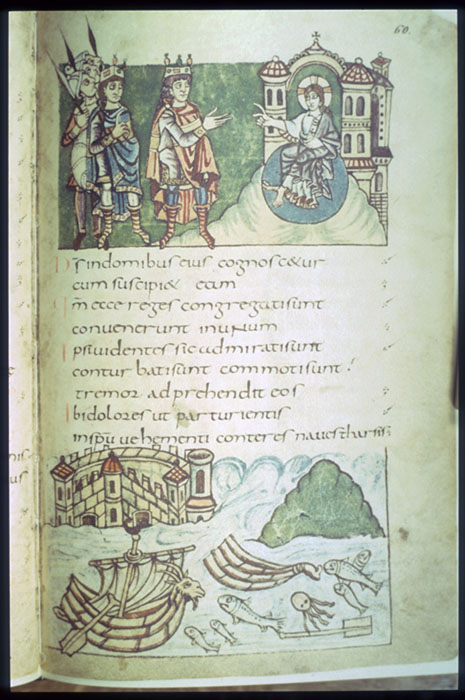 60.
D̄s indomibus eius cognosc&ur
cum suscipi& eam
Qm̄ ecce reges congregatisunt
convenerunt inunum
Ipsi videntes sic admiratisunt
conturbatisunt commotisunt
tremor adprehendit eos
Ibidolores ut parturientis
inspū vehementi conteres naves tharsis